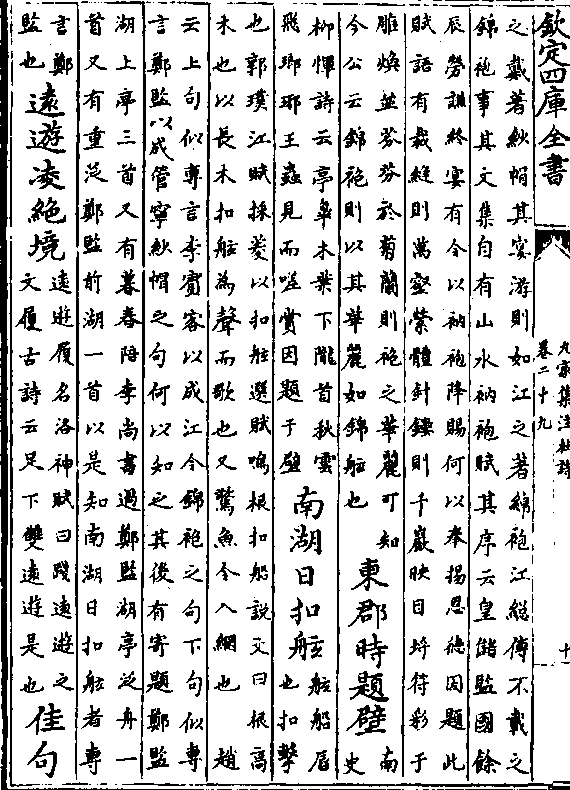 欽定四庫全書
九家集注杜詩
卷二十九
十
之戴著紗帽其宴游則如江之著綿袍江緫傳不載之
錦袍事其文集自有山水衲袍賦其序云皇儲監國餘
辰勞謙終宴有令以衲袍降賜何以奉揚恩德因題此
賦語有裁縫則萬壑縈體針縷則千巖映目埒符彩于
雕煥並芬芬於菊蘭則袍之華麗可知
今公云錦袍則以其華麗如錦舡也
東郡時題壁
南
史
柳惲詩云亭皋木葉下隴首秋雲
飛瑯耶王融見而嗟賞因題于壁
南湖日扣舷
舷船脣
也扣擊
也郭璞江賦採菱以扣舷選賦鳴根扣船說文曰根高
木也以長木扣舷為聲而歌也又驚魚令入網也 趙
云上句似專言李賓客以成江令錦袍之句下句似專
言鄭監以成管寧紗帽之句何以如之其後有寄題鄭監
湖上亭三首又有暮春陪李尚書過鄭監湖亭泛舟一
首又有重泛鄭監前湖一首以是知南湖日扣舷者專
言鄭
監也
遠遊凌絕境
遠遊履名洛神賦曰踐遠遊之
文履古詩云足下雙遠遊是也
佳句